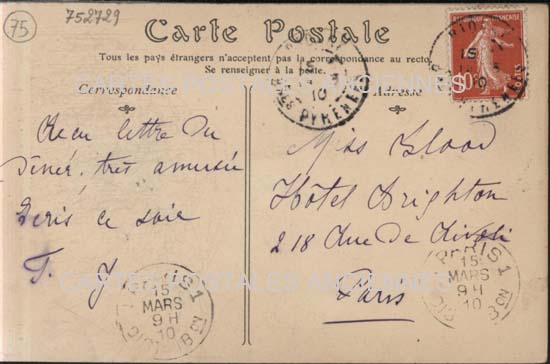 75
752729
Carte Postale
Tous les pays étrangers n'acceptent pas la correspondance au recto.
Se renseigner à la poste.
Correspondance
Adresse
CARTES POSTALES ANCIENNES
Reçu lettre du
diner, très amusée
Ecris ce soir
T. J.
Miss Blood
Hôtel Brighton
218 Rue de Rivoli
Paris
PYRENEES
10
PARIS 1
15
MARS
9 H
10
PARIS 1
15
MARS
9 H
10
CARTES POSTALES ANCIENNES